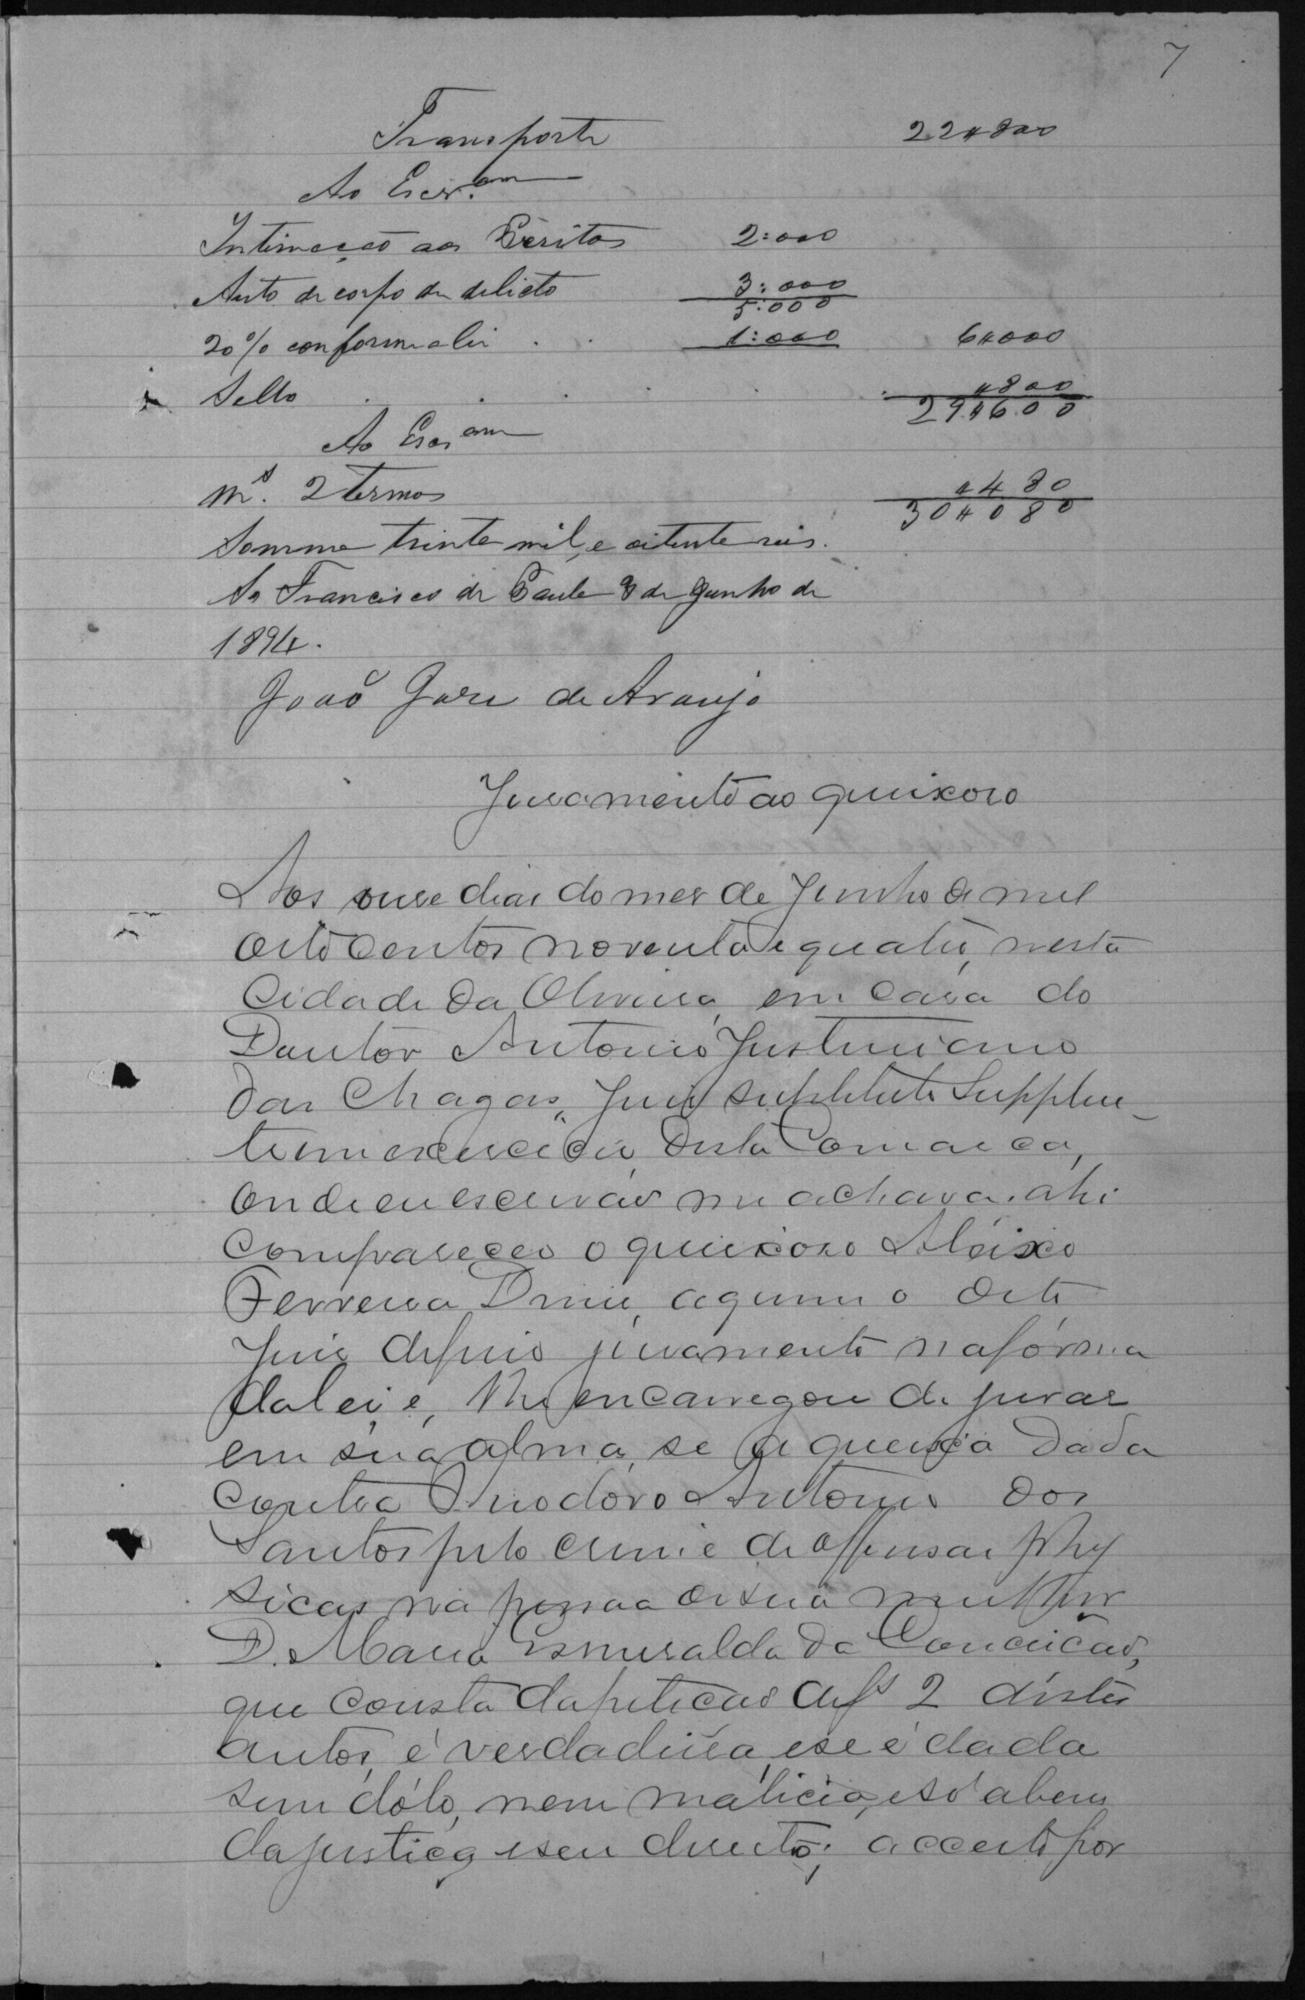 7
Transporte 22$800
Ao Escr.am
Intimação aos Peritos 2:000
Auto de corpo de delicto 3:000
5:000
20% conforme a lei . . 1:000 6$000
Sello . . . . . $800
29$600
Ao Escr am
Ms. 2 termos $480
30$080
Somma trinta mil, e oitenta reis.
S. Francisco de Paula 8 de Junho de
1894.
João José de Araujo
Juramento ao queixoso
Aos onse dias do mes de Junho de mil
oito centos noventa e quatro, nesta
Cidade da Oliveira, em casa do
Doutôr Antonio Justiniano
das Chagas, Juis substituto Supplen-
te em exercicio desta Comarca,
onde eu escrivão me achava, ahi
compareceo o queixoso Aleixo
Ferreira Diniz, a quem o dito
Juis deferio juramento na fórma
da lei, e, lhe encarregou de jurar
em sua alma, se a queixa dada
contra Theodoro Antonio dos
Santos pelo crime de offensas phy
sicas na pessoa de sua mulher
D. Maria Esmeralda da Conceição,
que consta da petição de fs 2 distes
autos, é verdadeira, e se é dada
sem dólo, nem malicia, e só a bem
da justiça e seu direito; acceito por